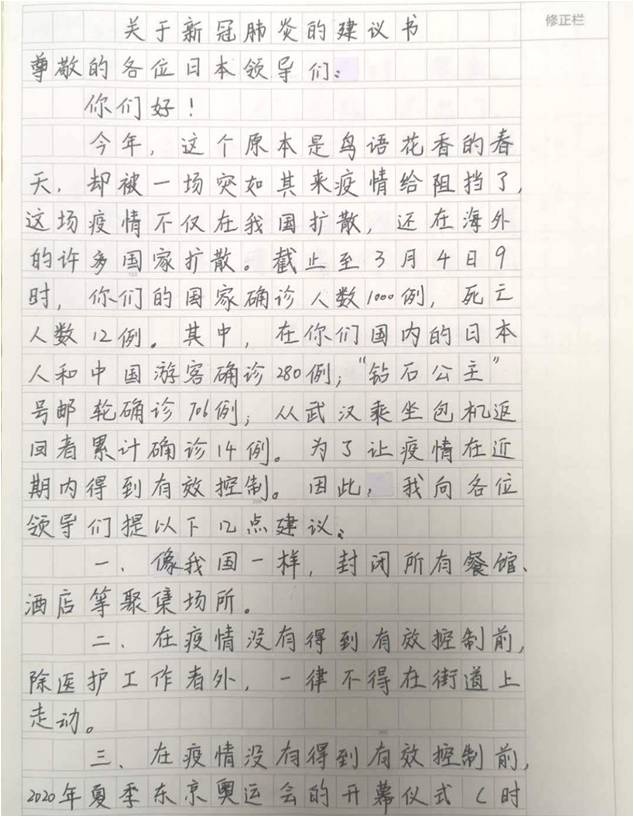 修正栏
关于新冠肺炎的建议书
尊敬的各位日本领导们:
你们好!
今年,这个原本是鸟语花香的春
天,却被一场突如其来疫情给阻挡了,
这场疫情不仅在我国扩散,还在海外
的许多国家扩散。截止至3月4日9
时,你们的国家确诊人数1000例,死亡
人数12例。其中,在你们国内的日本
人和中国游客确诊280例;“钻石公主”
号邮轮确诊706例;从武汉乘坐包机返
回者累计确诊14例。为了让疫情在近
期内得到有效控制。因此,我向各位
领导们提以下几点建议、
一、像我国一样,封闭所有餐馆、
酒店等聚集场所。
二、在疫情没有得到有效控制前,
除医护工作者外,一律不得在街道上
走动。
三、在疫情没有得到有效控制前,
2020年夏季东京奥运会的开幕仪式(时